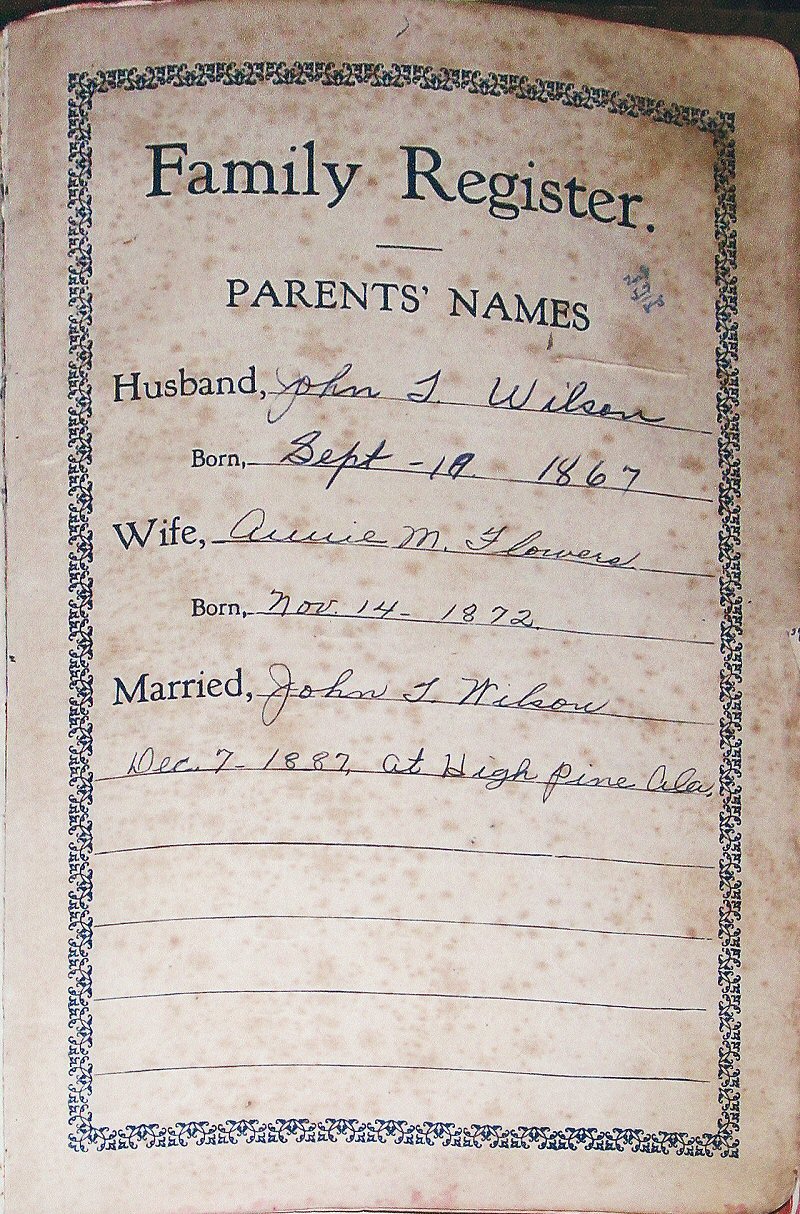 Family Register.
PARENTS' NAMES
Husband, John T. Wilson
Born, Sept - 19 1867
Wife, Annie M. Flowers
Born, Nov. 14 - 1872
Married, John T. Wilson
Dec. 7 - 1887, at High pine Ala.